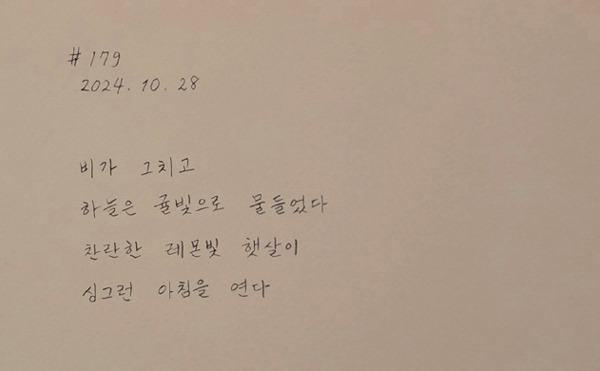 #179
2024. 10. 28
비가 그치고
하늘은 귤빛으로 물들었다
찬란한 레몬빛 햇살이
싱그런 아침을 연다